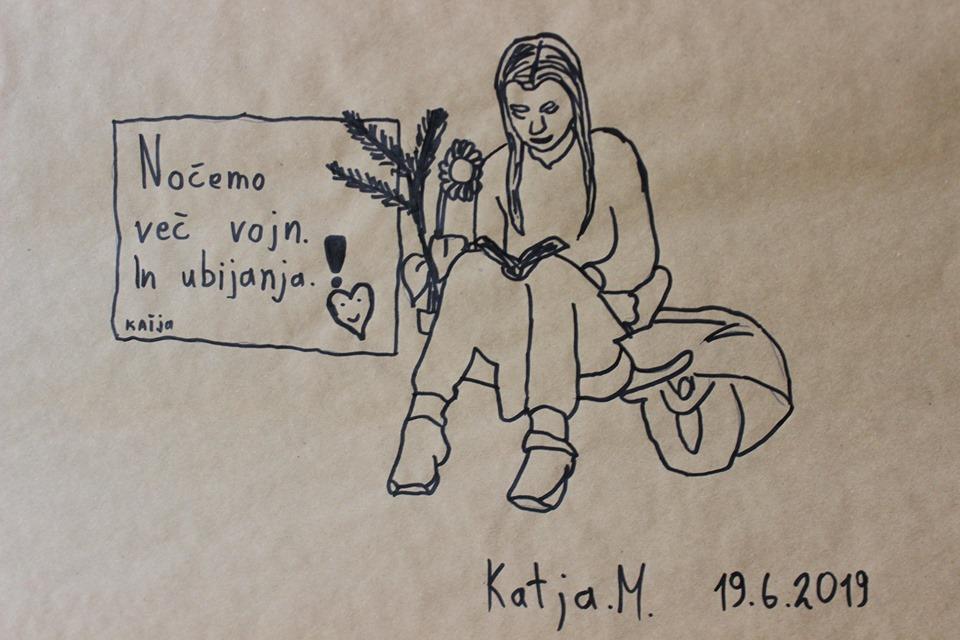 Nočemo
več vojn.
In ubijanja.!
KATja
Katja.M. 19.6.2019